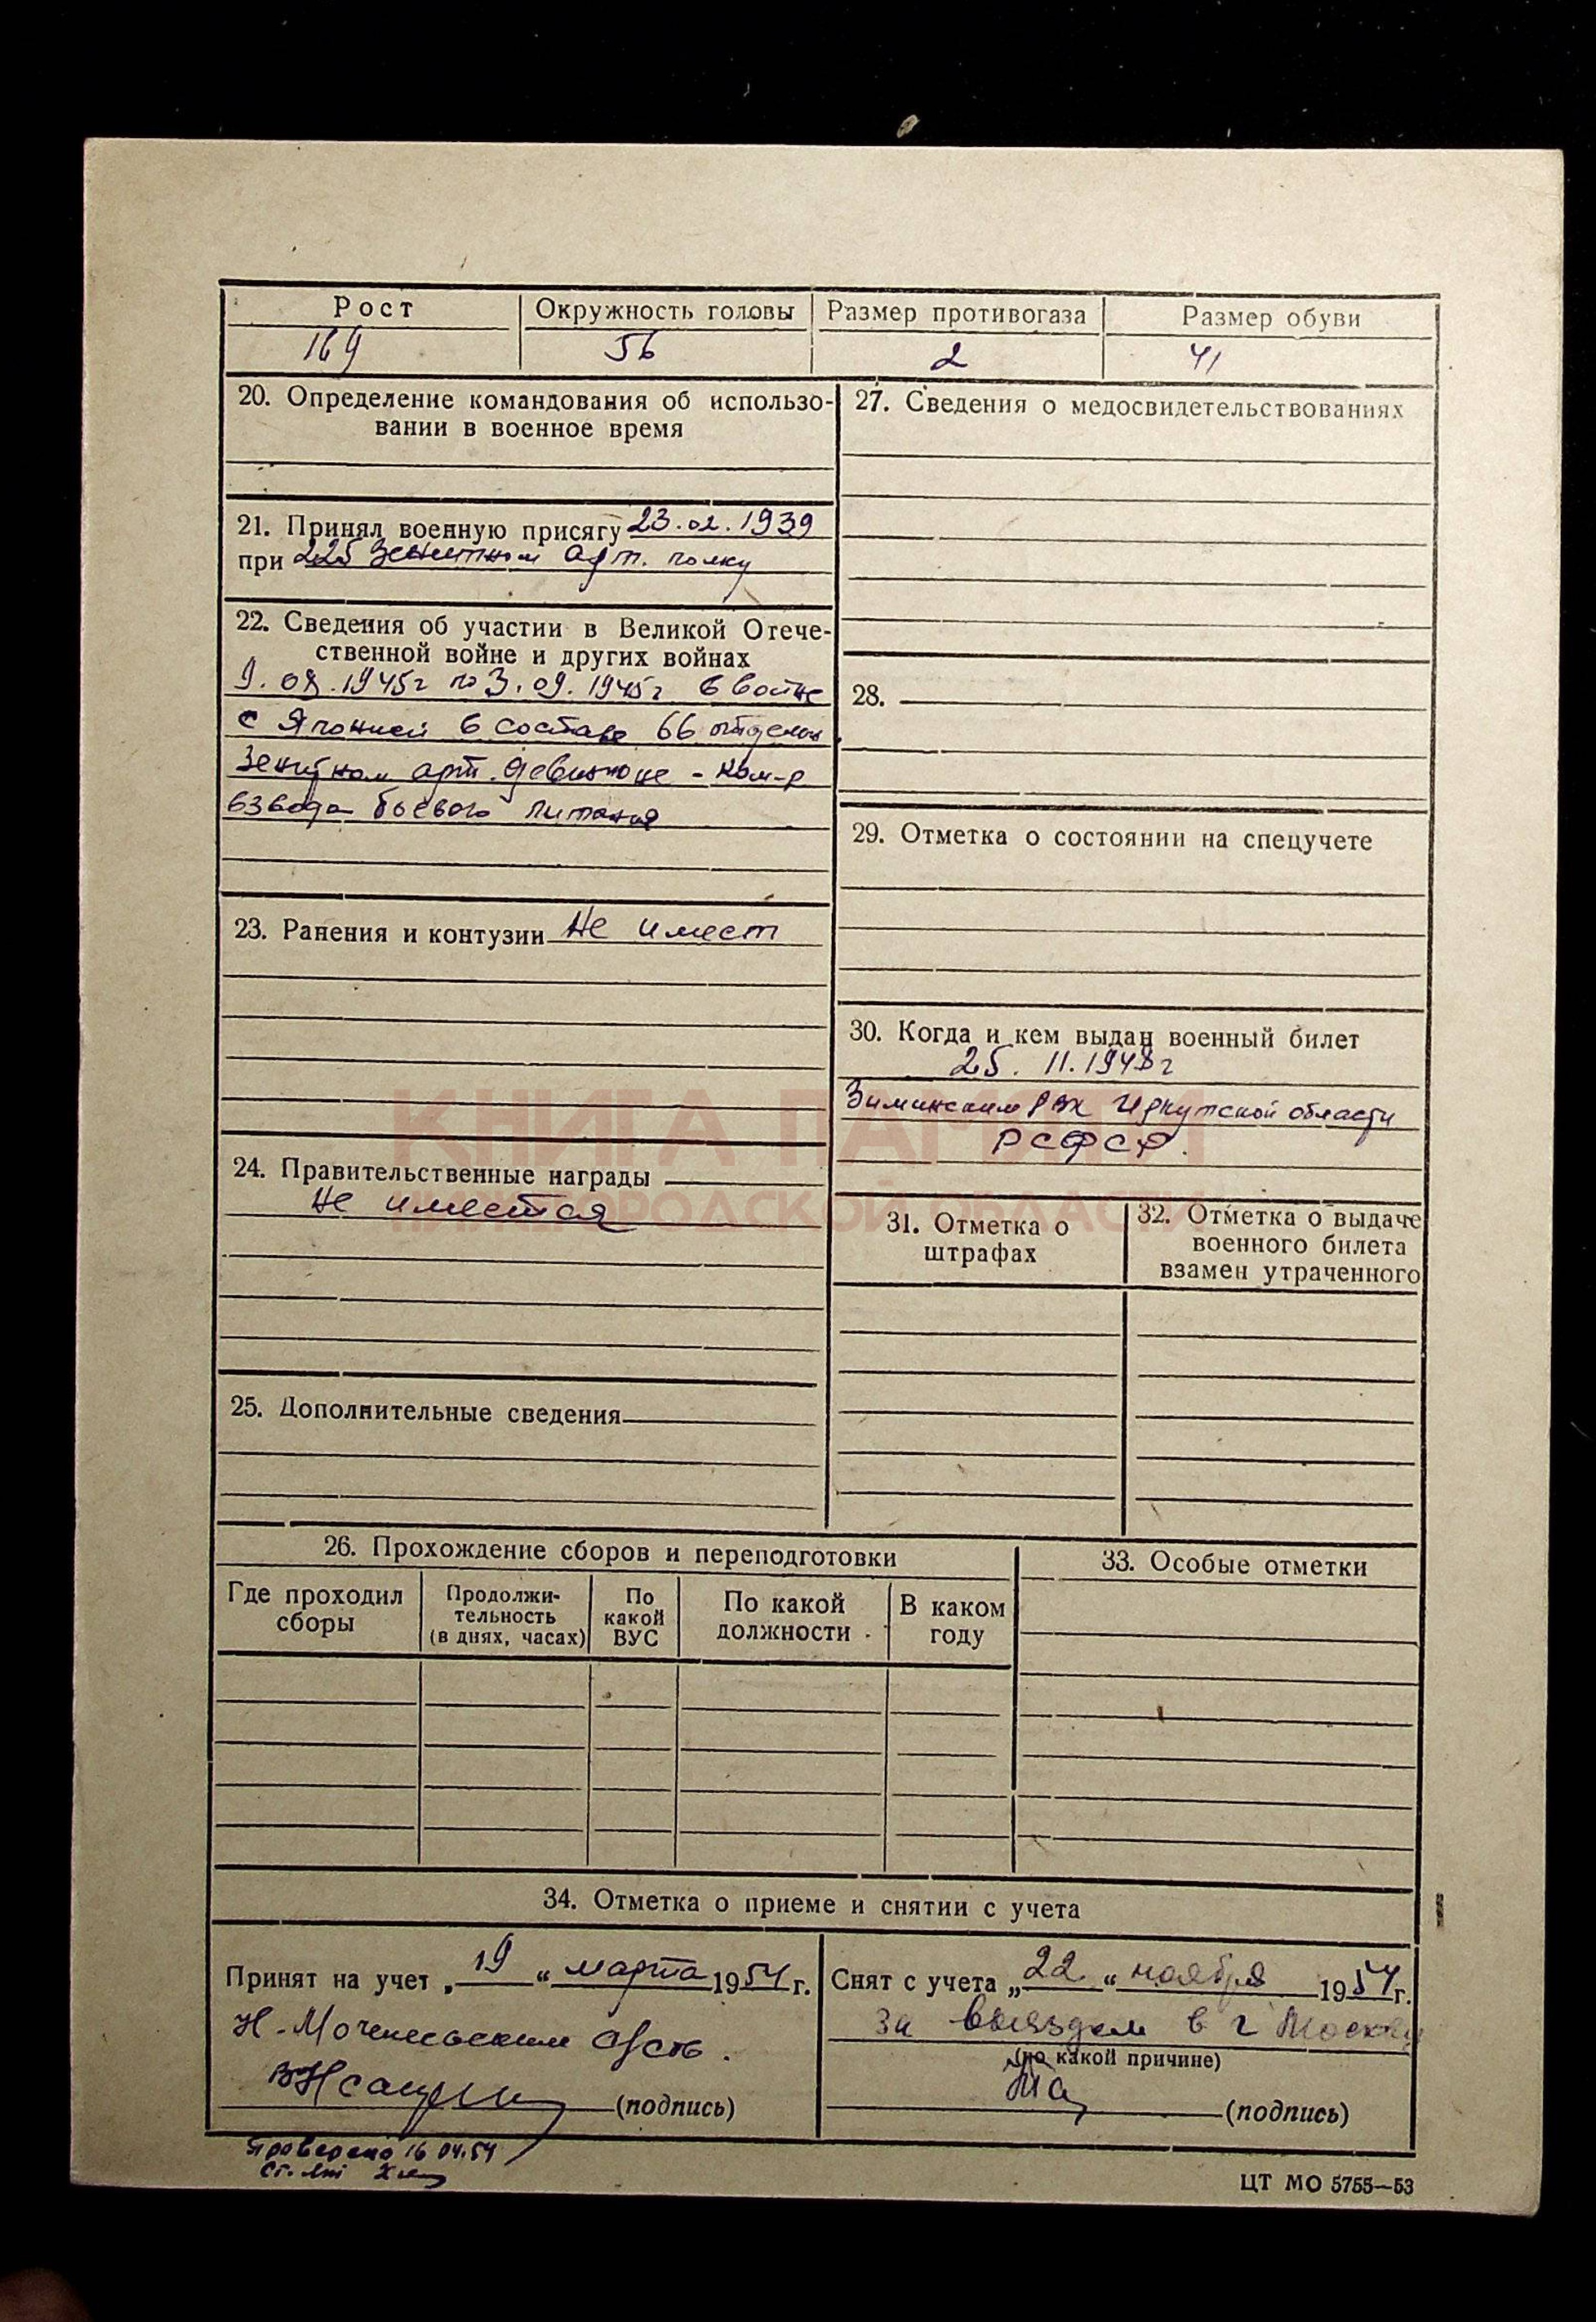 Рост
Окружность головы
Размер противогаза
Размер обуви
169
56
2
41
20. Определение командования об использо-
вании в военное время
21. Принял военную присягу 23.02.1939
при 225 зенитном арт. полку
22. Сведения об участии в Великой Отече-
ственной войне и других войнах
9.08.1945г по 3.09.1945г в войне
с Японией в составе 66 отдельн
зенитном арт. дивизионе - ком-р
взвода боевого питания
23. Ранения и контузии не имеет
24. Правительственные награды
не имеется
25. Дополнительные сведения
27. Сведения о медосвидетельствованиях
28.
29. Отметка о состоянии на спецучете
30. Когда и кем выдан военный билет
25. 11.1948г
Зиминским РВК Иркутской области
РСФСР.
31. Отметка о
штрафах
32. Отметка о выдаче
военного билета
взамен утраченного
26. Прохождение сборов и переподготовки
Где проходил
сборы
Продолжи-
тельность
(в днях, часах)
По
какой
ВУС
По какой
должности
В каком
году
33. Особые отметки
34. Отметка о приеме и снятии с учета
Принят на учет „19“ марта 1954 г.
(подпись)
Снят с учета „22“ ноября 1954 г.
за выездом в г Москву
(по какой причине)
(подпись)
Проверено 16 04.54
ЦТ МО 5755—53
КНИГА ПАМЯТИ
НИЖЕГОРОДСКОЙ ОБЛАСТИ